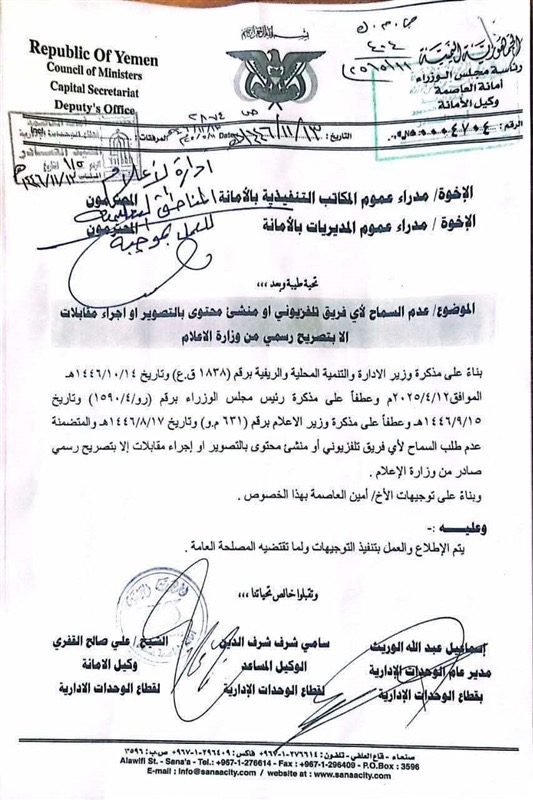 الجمهورية اليمنية
رئاسة مجلس الوزراء
أمانة العاصمة
وكيل الأمانة
Republic Of Yemen
Council of Ministers
Capital Secretariat
Deputy's Office
الرقم:
التاريخ: ١٤٤٦/١١/١٣
المرفقات:
الإخوة/ مدراء عموم المكاتب التنفيذية بالأمانة المحترمون
الإخوة / مدراء عموم المديريات بالأمانة المحترمون
تحية طيبة وبعد ،،،
الموضوع/ عدم السماح لأي فريق تلفزيوني او منشئ محتوى بالتصوير او اجراء مقابلات
الا بتصريح رسمي من وزارة الاعلام
بناءً على مذكرة وزير الادارة والتنمية المحلية والريفية برقم (١٨٣٨ ق.ع) وتاريخ ١٤٤٦/١٠/١٤هـ
الموافق ٢٠٢٥/٤/١٢م وعطفاً على مذكرة رئيس مجلس الوزراء برقم (رو/١٥٩٠/٤) وتاريخ
١٤٤٦/٩/١٥هـ وعطفاً على مذكرة وزير الاعلام برقم (٦٣١ م.و) وتاريخ ١٤٤٦/٨/١٧هـ والمتضمنة
عدم طلب السماح لأي فريق تلفزيوني أو منشئ محتوى بالتصوير او إجراء مقابلات إلا بتصريح رسمي
صادر من وزارة الإعلام .
وبناءً على توجيهات الأخ/ أمين العاصمة بهذا الخصوص .
وعليه :-
يتم الإطلاع والعمل بتنفيذ التوجيهات ولما تقتضيه المصلحة العامة .
وتقبلوا خالص تحياتنا ،،،
اسماعيل عبد الله الوريث
مدير عام الوحدات الإدارية
بقطاع الوحدات الإدارية
سامي شرف شرف الدين
الوكيل المساعد
لقطاع الوحدات الإدارية
الشيخ / علي صالح القفري
وكيل الامانة
لقطاع الوحدات الادارية
صنعاء - قاع العلفي - تلفون: ٢٧٦٦١٤-١-٩٦٧+ فاكس: ٢٩٦٤٠٩-١-٩٦٧+ ص.ب: ٣٥٩٦
Alawifi St. - Sana'a - Tel: +967-1-276614 - Fax : +967-1-296409 - P.O.Box : 3596
E-mail : info@sanaacity.com / website at : www.sanaacity.com